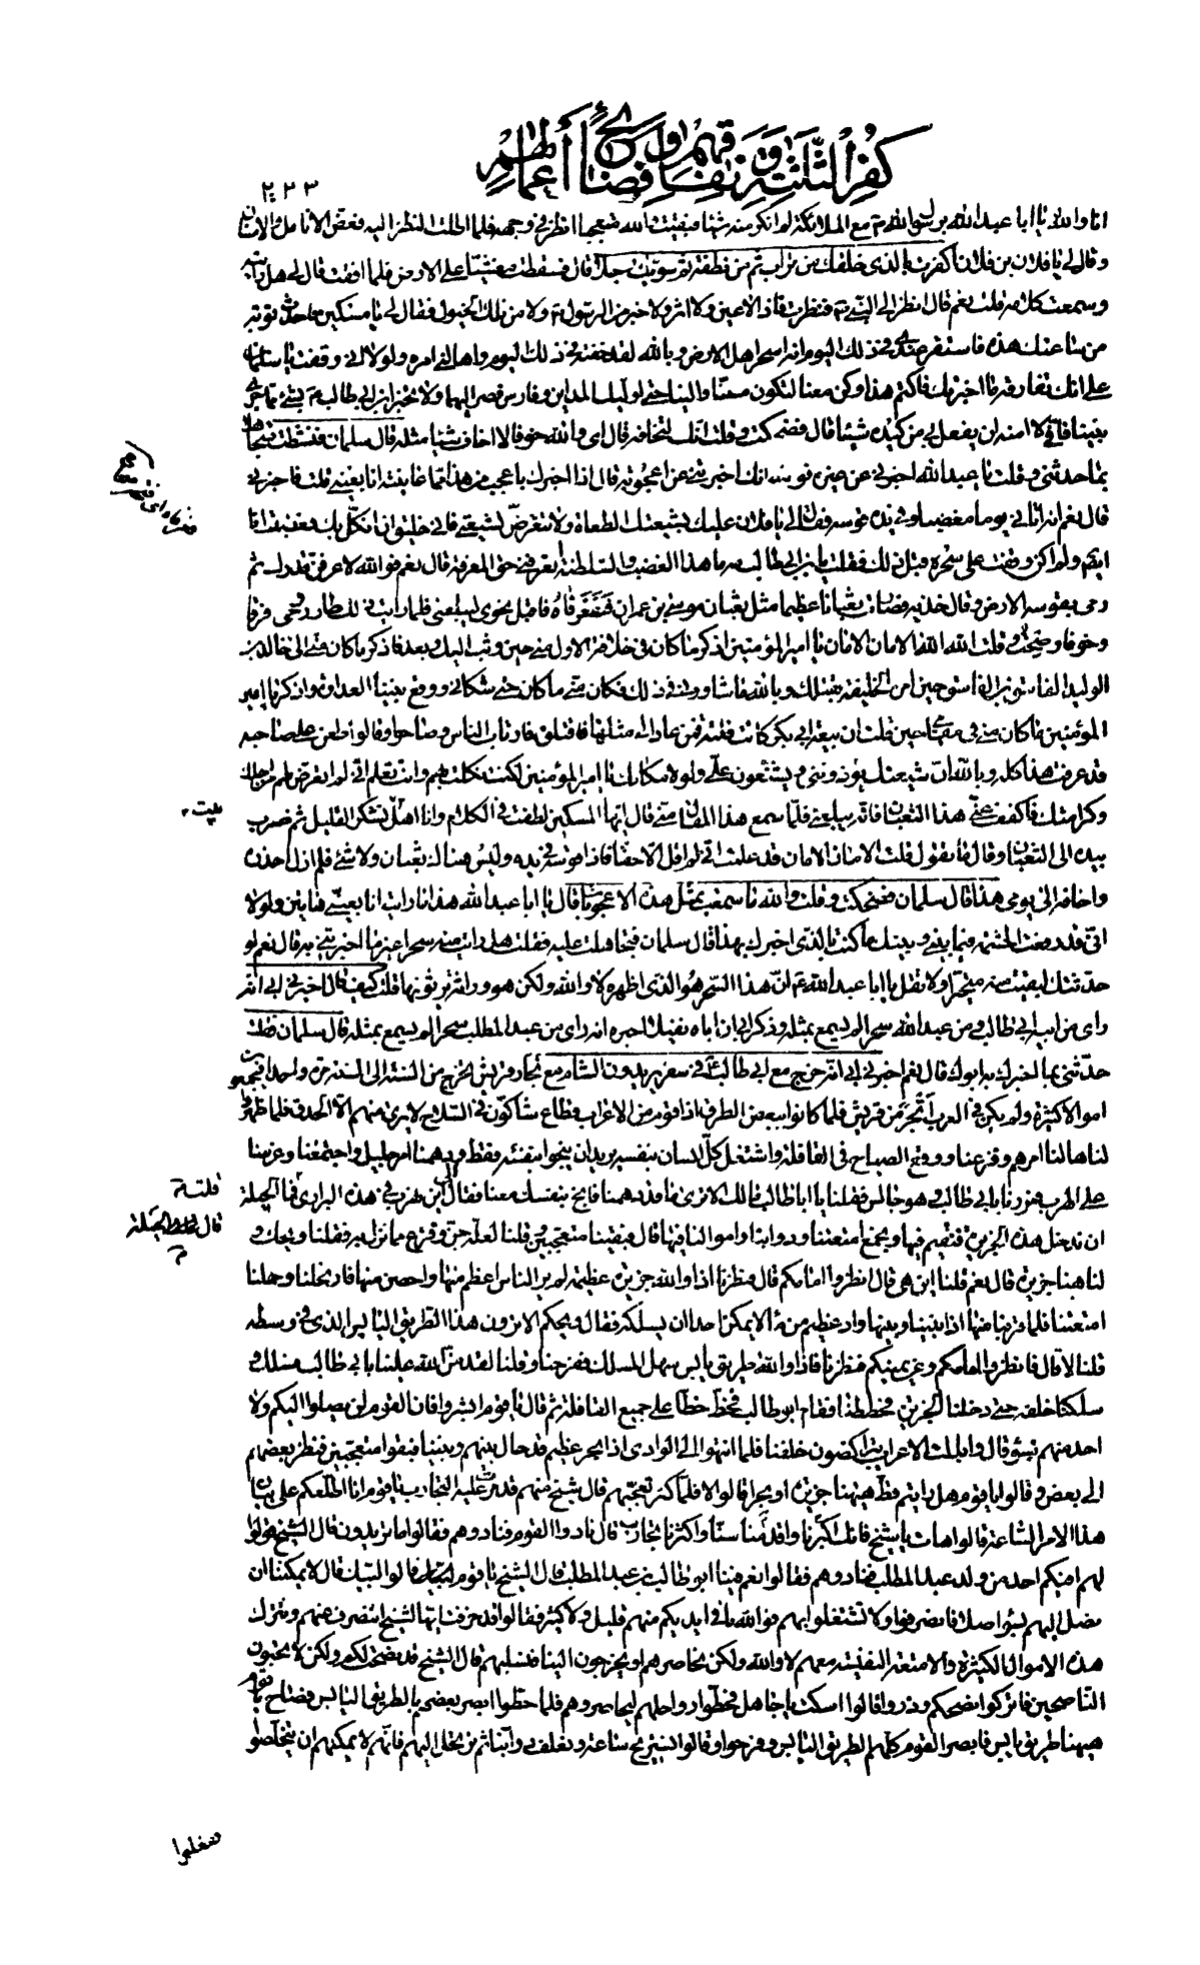 كُفْرِ الثَّلٰثَةِ وَ نِفَاقِهِمْ وَ فَضَائِحِ أَعْمَالِهِمْ
٢٣٣
انا والله يا ابا عبد الله برسول الله مع الملائكة لم انكر منه شيئا فبقيت والله متعجبا انظر في وجهه فلما اطلت النظر اليه فعض الانامل
وقال لي يا فلان بن فلان اكفرت بالذي خلقك من تراب ثم من نطفة ثم سويك رجلا قال فسقطت مغشيا على الارض فلما افقت قال لي هل رايته
وسمعت كلامه قلت نعم قال انظر الى النبي فنظرت فاذا لا عين ولا اثر ولا خبر من الرسول ولا من تلك الخيول فقال لي يا مسكين فاحدث توبة
من ساعتك هذه فاستقر عندي في ذلك اليوم انه اسحر اهل الارض وبالله لقد خفته في ذلك اليوم وهالني امره ولولا اني وقفت يا سلمان
على انك تفارقه ما اخبرتك فاكتم هذا وكن معنا لتكون منا والينا حتى اوليك المداين وفارس فصر اليهما ولا تخبر ابن ابي طالب بشئ مما جرى
بيننا فاني لا امنه ان يفعل لي من كيده شيئا قال فضحكت وقلت انك لتخافه قال اي والله خوفا لا اخاف شيئا مثله قال سلمان فنشطت
بما حدثني وقلت يا عبد الله اخبرني عن
قال نعم انه اتاني يوما مغضبا وفي يده قوسه فقال لي يا فلان عليك بشيعتك الطغاة ولا تتعرض لشيعتي فاني خليق ان انكل بك فغضبت انا
ايضا ولم اكن وقفت على سحره قبل ذلك فقلت يا بن ابي طالب مه ما هذا الغضب والسلطنة اتعرفني حق المعرفة قال نعم فوالله لاعرفن قدرك ثم
رمى بقوسه الارض وقال خذيه فصارت ثعبانا عظيما مثل ثعبان موسى بن عمران ففغر فاه فاقبل نحوي ليبلعني فلما رايت ذلك طار روحي فرقا
وخوفا وصحت وقلت الله الله الامان الامان يا امير المؤمنين اذكر ما كان في خلافة الاول مني حين وثب اليك وبعد فاذكر ما كان مني الى خالد بن
الوليد الفاسق بن الفاسق حين امره الخليفة بقتلك وبالله ما شاورني في ذلك فكان مني ما كان حتى شكاني ووقع بيننا العداوة واذكر يا امير
المؤمنين ما كان مني في مقامي حين قلت ان بيعة ابي بكر كانت فلتة فمن عاد الى مثلها فاقتلوه فارتاب الناس وصاحوا وقالوا طعن على صاحبه
قد عرفت هذا كله وبالله ان شيعتك يؤذونني ويشنعون علي ولولا مكانك يا امير المؤمنين لكنت نكلت بهم وانت تعلم اني لم اتعرض لهم من اجلك
وكرامتك فاكفف عني هذا الثعبان فانه يبلعني فلما سمع هذا المقال مني قال ايها المسكين لطفت في الكلام وانا اهل بيت نشكر القليل ثم ضرب
بيده الى الثعبان وقال ما تقول قلت الامان الامان قد علمت اني لم اقل الا حقا فاذا قوسه في يده وليس هناك ثعبان ولا شئ فلم ازل احذره
واخافه الى يومي هذا قال سلمان فضحكت وقلت والله ما سمعت بمثل هذه الاعجوبة قال يا ابا عبد الله هذا ما رايت انا بعيني هاتين ولولا
اني قد رفعت الحشمة فيما بيني وبينك ما كنت بالذي اخبرك بهذا قال سلمان فتجاهلت عليه فقلت هل رايت منه سحرا غير ما اخبرتني به قال نعم لو
حدثتك لبقيت منه متحيرا ولا تقل يا ابا عبد الله ان هذا السحر هو الذي اظهره لا والله ولكن هو وراثة يرثونها قلت كيف قال اخبرني ابي انه
راى من ابيه ابي طالب ومن عبد الله سحرا لم يسمع بمثله وذكر ابي ان اباه نفيل اخبره انه راى من عبد المطلب سحرا لم يسمع بمثله قال سلمان فقلت
حدثني بما اخبرك به ابوك قال نعم اخبرني ابي انه خرج مع ابي طالب في سفر يريدون الشام مع تجار قريش تخرج من السنة الى السنة مرة واحدة
اموالا كثيرة ولم يكن في العرب اتجر من قريش فلما كانوا ببعض الطريق اذا قوم من الاعراب قطاع شاكون في السلاح لا يرى منهم الا الحدق فلما ظهروا
لنا هالنا امرهم وفزعنا ووقع الصياح في القافلة واشتغل كل انسان بنفسه يريد ان ينجو بنفسه فقط ودهمنا امر جليل واجتمعنا وعزمنا
على الهرب فمررنا بابي طالب وهو جالس فقلنا يا ابا طالب مالك الا ترى ما قد دهمنا فانج بنفسك معنا فقال الى اين نهرب في هذه البراري قلنا فما الحيلة
ان ندخل هذه الجزيرة فنقيم فيها ونجمع امتعتنا ودوابنا واموالنا فيها قال فبقينا متعجبين وقلنا لعله جن وفزع مما نزل به فقلنا ويحك و
لنا هنا جزيرة قال نعم قلنا اين هي قال انظروا امامكم قال فنظرنا اذا والله جزيرة عظيمة لم ير الناس اعظم منها ولا احصن منها فارتحلنا وحملنا
امتعتنا فلما قربنا منها اذا بيننا وبينها واد عظيم من ماء لا يمكن احدا ان يسلكه فقال ويحكم الا ترون هذا الطريق اليابس الذي في وسطه
قلنا لا قال فانظروا امامكم وعن يمينكم فنظرنا فاذا والله طريق يابس سهل المسلك ففرحنا وقلنا لقد من الله علينا بابي طالب فسلك و
سلكنا خلفه حتى دخلنا الجزيرة فحططنا فقام ابو طالب فخط خطا على جميع القافلة ثم قال يا قوم ابشروا فان القوم لن يصلوا اليكم ولا
احد منهم بسوء قال واقبلت الاعراب يتراكضون خلفنا فلما انتهوا الى الوادي اذا بحر عظيم قد حال بينهم وبيننا فبقوا متعجبين فنظر بعضهم
الى بعض وقالوا يا قوم هل رايتم قط هيهنا جزيرة او بحرا قالوا لا فلما كثر تعجبهم قال شيخ منهم قد مرت عليه التجارب يا قوم انا اطلعكم على بيان
هذا الامر الساعة قالوا هات يا شيخ فانك اكبرنا واقدمنا سنا واكثرنا تجاربا قال نادوا القوم فنادوهم فقالوا ما تريدون قال الشيخ قولوا
لهم افيكم احد من ولد عبد المطلب فنادوهم فقالوا نعم فينا ابو طالب بن عبد المطلب قال الشيخ يا قوم قالوا لبيك قال لا يمكننا ان
نصل اليهم بسوء اصلا فانصرفوا ولا تشتغلوا بهم فوالله ما في ايديكم منهم قليل ولا كثير فقالوا قد خرفت ايها الشيخ اتنصرف عنهم وتترك
هذه الاموال الكثيرة والامتعة النفيسة معهم لا والله ولكن نحاصرهم او يخرجون الينا فنسلبهم قال الشيخ قد نصحت لكم ولكن لا تحبون
الناصحين فاتركوا نصحكم وذروا قالوا اسكت يا جاهل فحطوا رواحلهم ليحاصروهم فلما حطوا ابصر بعضهم بالطريق اليابس فصاح يا قوم
هيهنا طريق يابس فابصر القوم كلهم الطريق اليابس وفرحوا وقالوا نستريح ساعة ونعلف دوابنا ثم نرتحل اليهم فانهم لا يمكنهم ان يتخلصوا
بيت
قلنا
ففعلوا